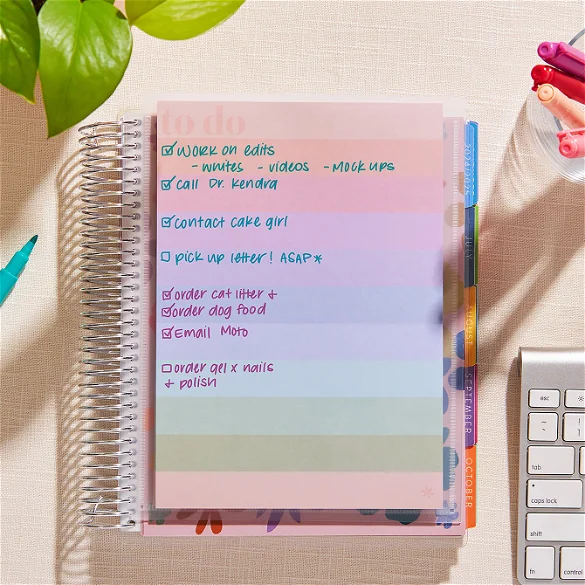 to do
☑ Work on edits
- whites - videos - Mock ups
☑ call Dr. Kendra
☑ contact cake girl
☐ pick up letter! ASAP*
☑ order cat litter +
☑ order dog food
☑ Email Moto
☐ order gel x nails
+ polish
2024/2025
JULY
AUGUST
SEPTEMBER
OCTOBER
esc
~
`
!
1
tab
caps lock
shift
fn
control